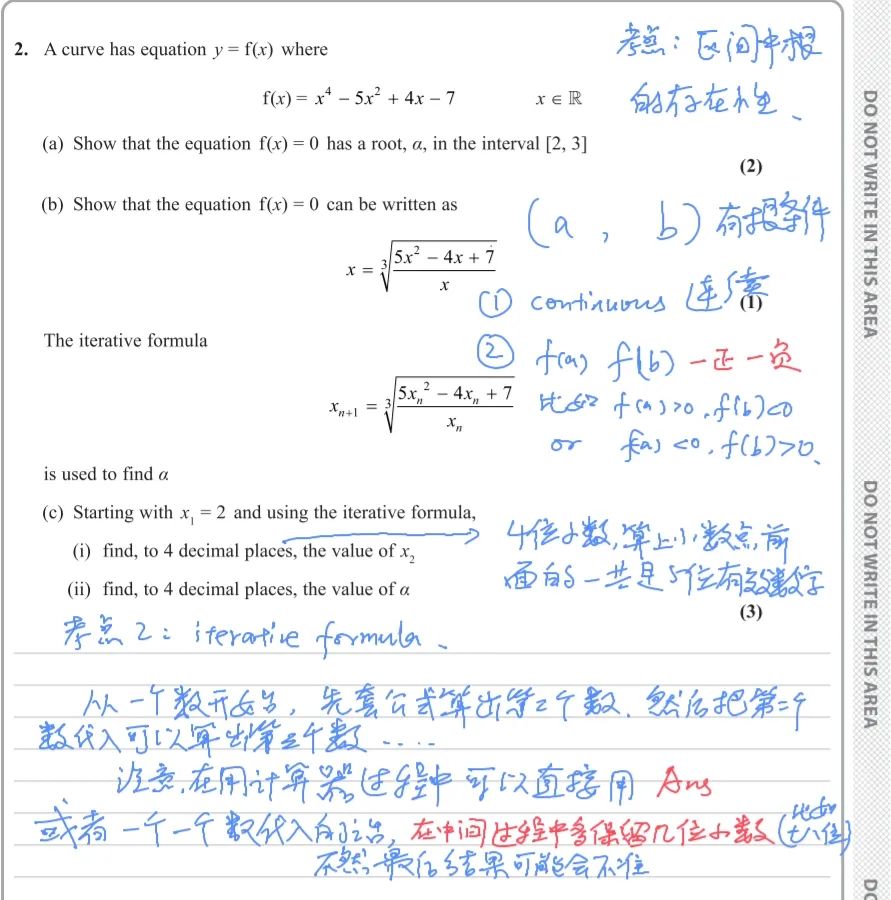 2. A curve has equation y = f(x) where
考点：区间中根
f(x) = x⁴ − 5x² + 4x − 7    x ∈ ℝ
的存在性、
(a) Show that the equation f(x) = 0 has a root, α, in the interval [2, 3]
(2)
(b) Show that the equation f(x) = 0 can be written as
(a, b) 有根条件
x = ∛((5x² − 4x + 7)/x)
(1)
① continuous 连续
The iterative formula
② f(a) f(b) 一正一负
xₙ₊₁ = ∛((5xₙ² − 4xₙ + 7)/xₙ)
比如 f(a)>0, f(b)<0
or f(a)<0, f(b)>0、
is used to find α
(c) Starting with x₁ = 2 and using the iterative formula,
(i) find, to 4 decimal places, the value of x₂
4位小数,算上小数点前
(ii) find, to 4 decimal places, the value of α
面的一共是5位有效数字
(3)
考点2：iterative formula、
从一个数开始，先套公式算出第2个数．然后把第二个
数代入可以算出第三个数……
注意，在用计算器过程中可以直接用 Ans
或者一个一个数代入的话，在中间过程中多保留几位小数（比如
七八位）
不然最后结果可能会不准
DO NOT WRITE IN THIS AREA
DO NOT WRITE IN THIS AREA
DO